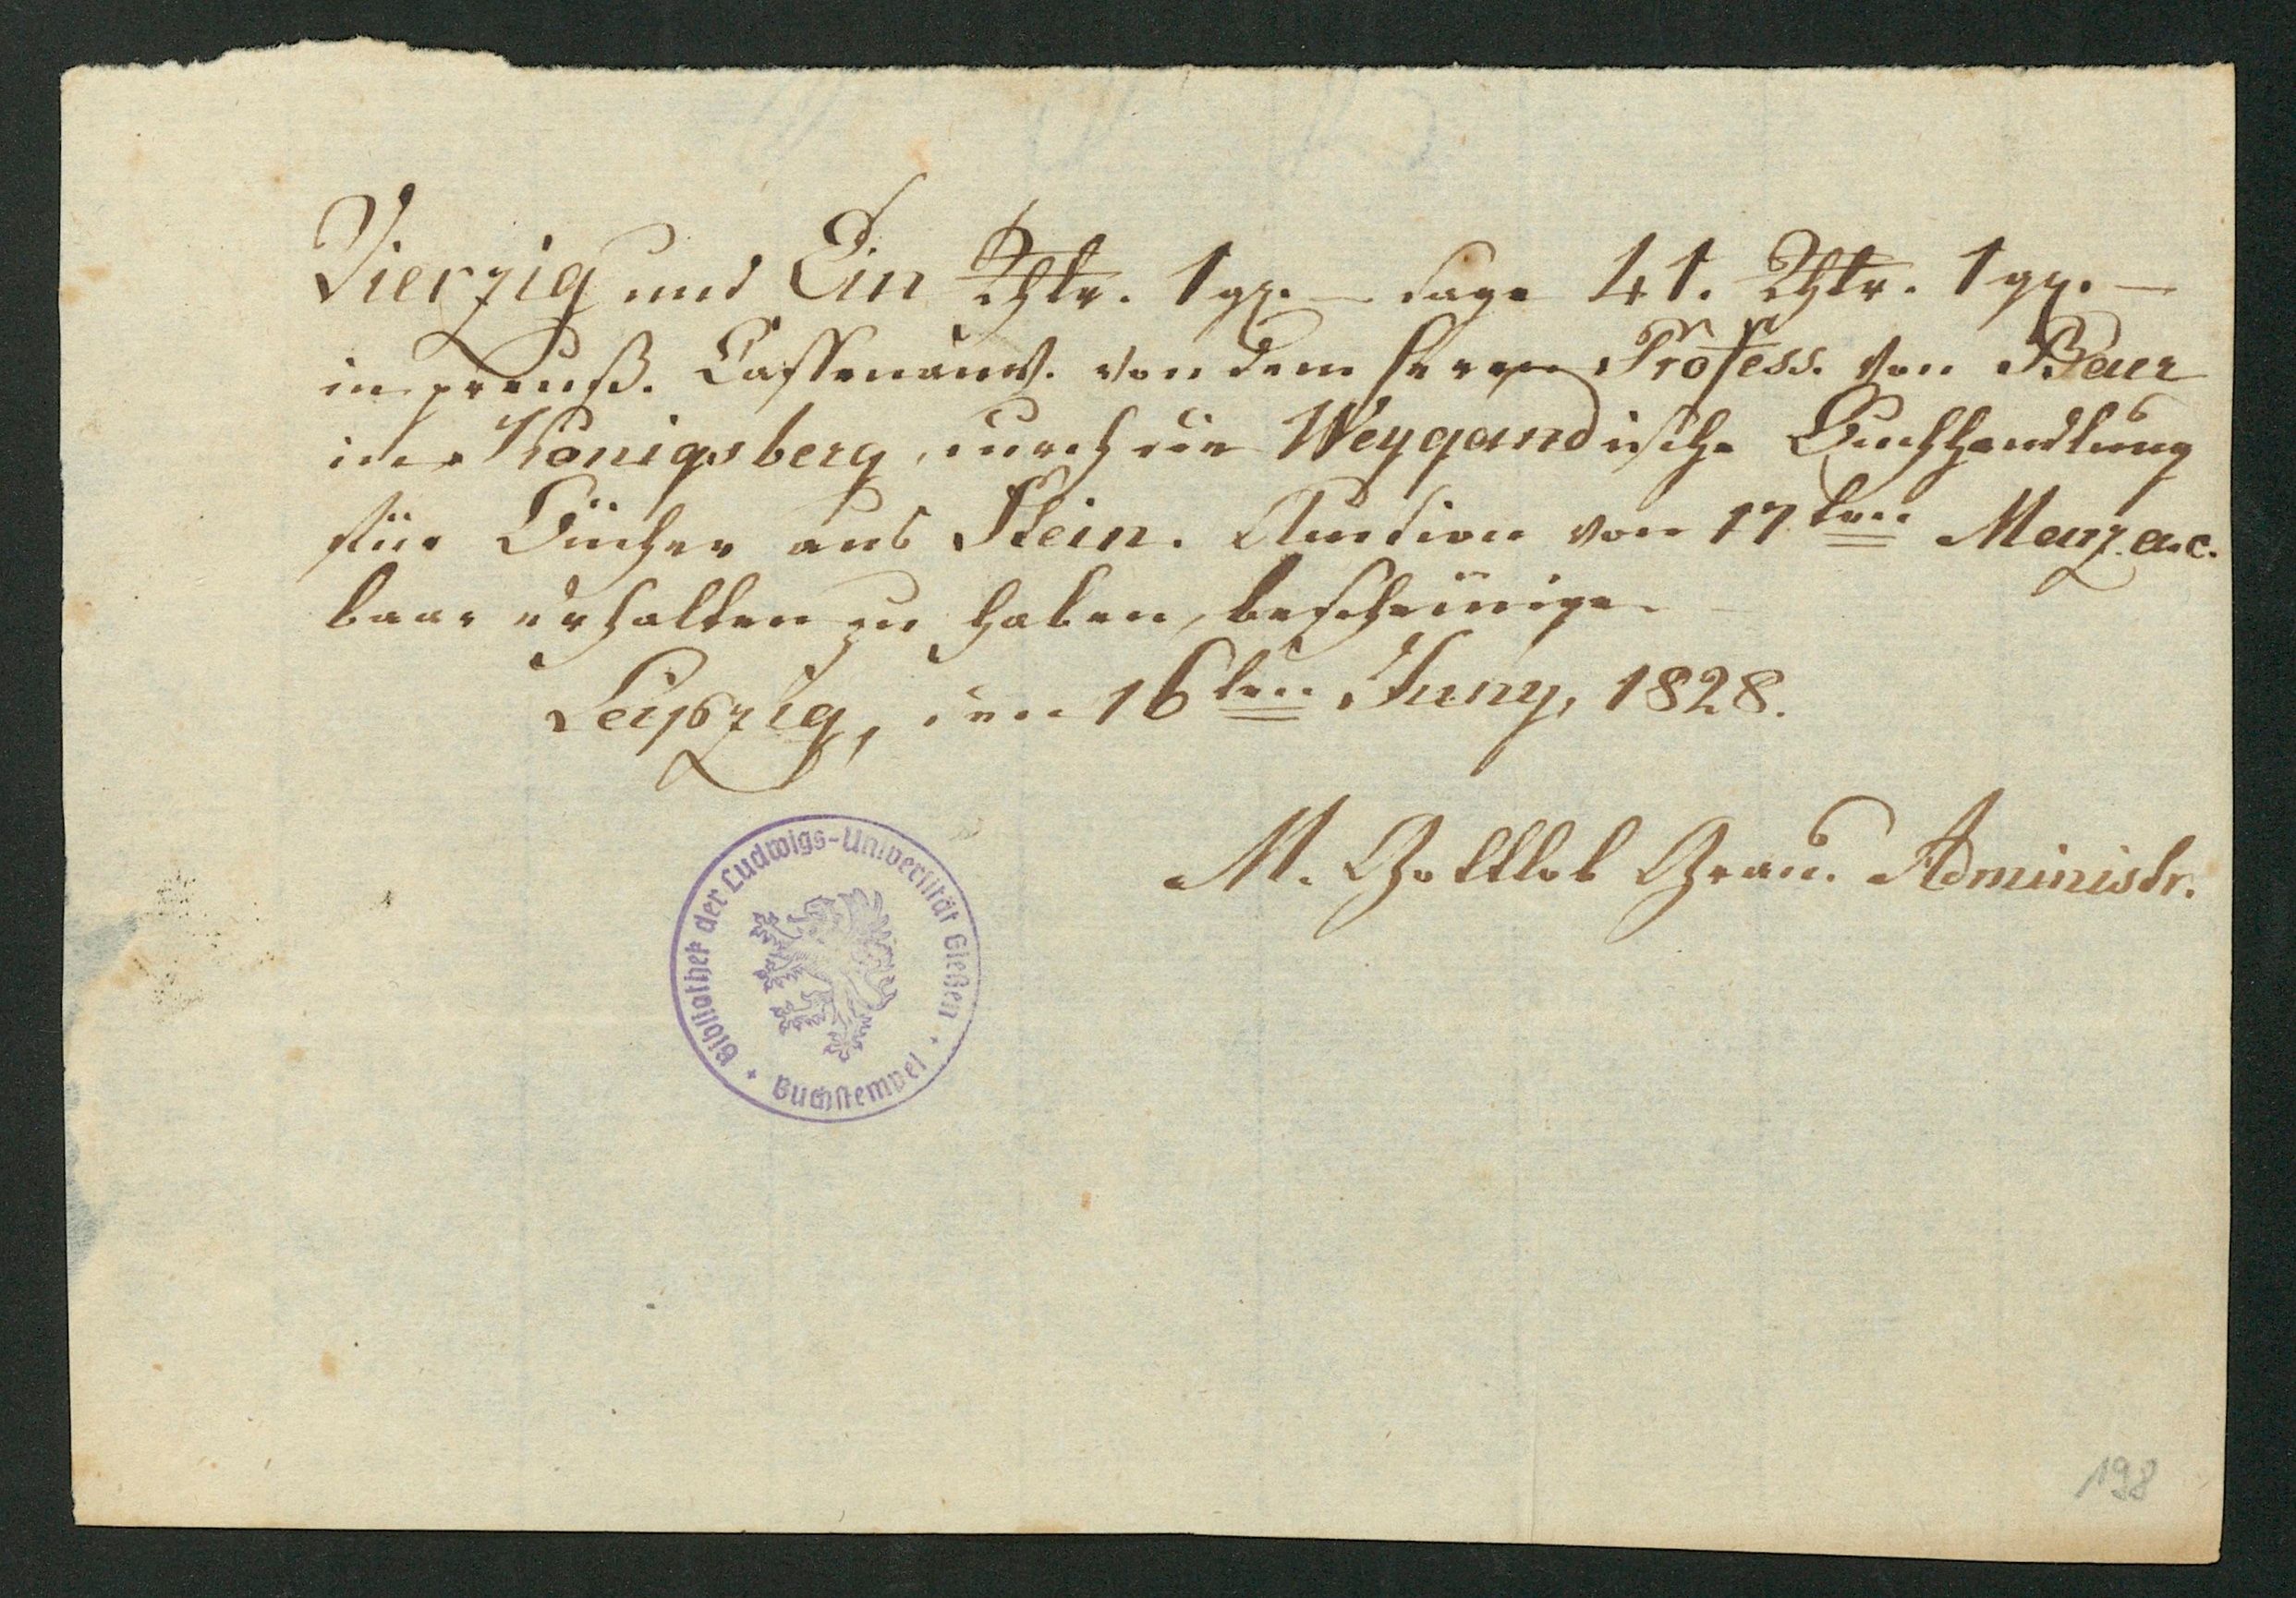 Vierzig und Ein Rthlr. 1 gr. – sage 41. Rthlr. 1 gr. –
in preuß. Cassenanw. von dem Herrn Profess. von Baer
in Königsberg, durch die Weygandische Buchhandlung
für Bücher aus Stein. Auction von 17ten März a.c.
baar erhalten zu haben, bescheinige
Leipzig, den 16ten Juny, 1828.
M. Gottlob Grau. Administr.
Bibliothek der Ludwigs-Universität Gießen
Buchstempel
198